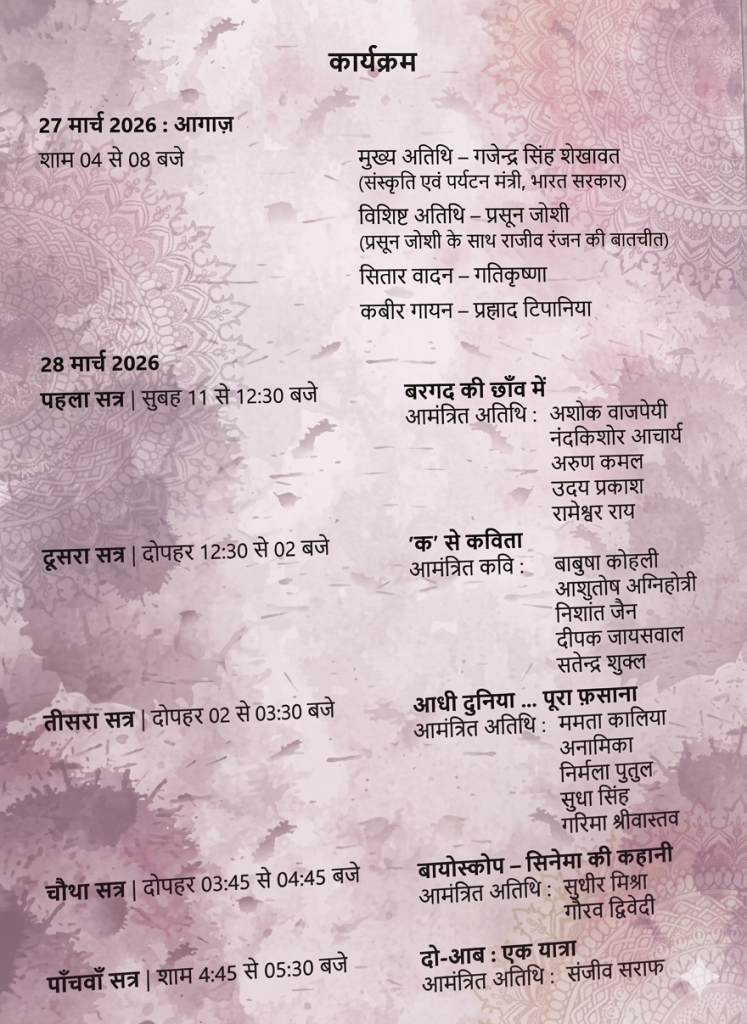 कार्यक्रम
27 मार्च 2026 : आगाज़
शाम 04 से 08 बजे
मुख्य अतिथि – गजेन्द्र सिंह शेखावत
(संस्कृति एवं पर्यटन मंत्री, भारत सरकार)
विशिष्ट अतिथि – प्रसून जोशी
(प्रसून जोशी के साथ राजीव रंजन की बातचीत)
सितार वादन – गतिकृष्णा
कबीर गायन – प्रह्लाद टिपानिया
28 मार्च 2026
पहला सत्र | सुबह 11 से 12:30 बजे
बरगद की छाँव में
आमंत्रित अतिथि : अशोक वाजपेयी
नंदकिशोर आचार्य
अरुण कमल
उदय प्रकाश
रामेश्वर राय
दूसरा सत्र | दोपहर 12:30 से 02 बजे
'क' से कविता
आमंत्रित कवि : बाबुषा कोहली
आशुतोष अग्निहोत्री
निशांत जैन
दीपक जायसवाल
सतेन्द्र शुक्ल
तीसरा सत्र | दोपहर 02 से 03:30 बजे
आधी दुनिया ... पूरा फ़साना
आमंत्रित अतिथि : ममता कालिया
अनामिका
निर्मला पुतुल
सुधा सिंह
गरिमा श्रीवास्तव
चौथा सत्र | दोपहर 03:45 से 04:45 बजे
बायोस्कोप – सिनेमा की कहानी
आमंत्रित अतिथि : सुधीर मिश्रा
गौरव द्विवेदी
पाँचवाँ सत्र | शाम 4:45 से 05:30 बजे
दो-आब : एक यात्रा
आमंत्रित अतिथि : संजीव सराफ